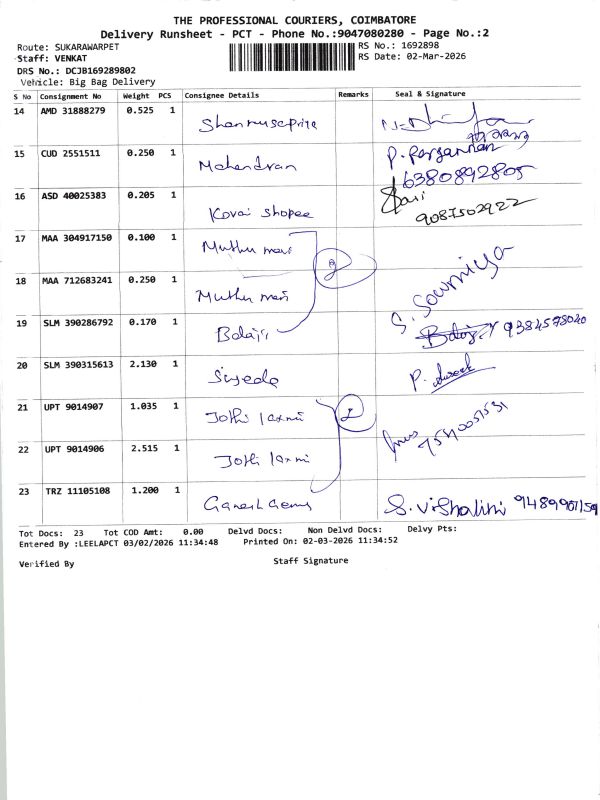 THE PROFESSIONAL COURIERS, COIMBATORE
Delivery Runsheet - PCT - Phone No.:9047080280 - Page No.:2
Route: SUKARAWARPET
Staff: VENKAT
DRS No.: DCJB169289802
Vehicle: Big Bag Delivery
RS No.: 1692898
RS Date: 02-Mar-2026
S No Consignment No Weight PCS Consignee Details Remarks Seal & Signature
14 AMD 31888279 0.525 1
15 CUD 2551511 0.250 1 Mahendran 6380892805
16 ASD 40025383 0.205 1 Kovai Shopee 9087502922
17 MAA 304917150 0.100 1 Muthu mari
18 MAA 712683241 0.250 1 Muthu mari S. Sowmiya
19 SLM 390286792 0.170 1 Balaji 9384578040
20 SLM 390315613 2.130 1 P.
21 UPT 9014907 1.035 1 Jothi laxmi
22 UPT 9014906 2.515 1 Jothi laxmi
23 TRZ 11105108 1.200 1 Ganesh Gems S. Vishalini
Tot Docs: 23 Tot COD Amt: 0.00 Delvd Docs: Non Delvd Docs: Delvy Pts:
Entered By :LEELAPCT 03/02/2026 11:34:48 Printed On: 02-03-2026 11:34:52
Verified By Staff Signature